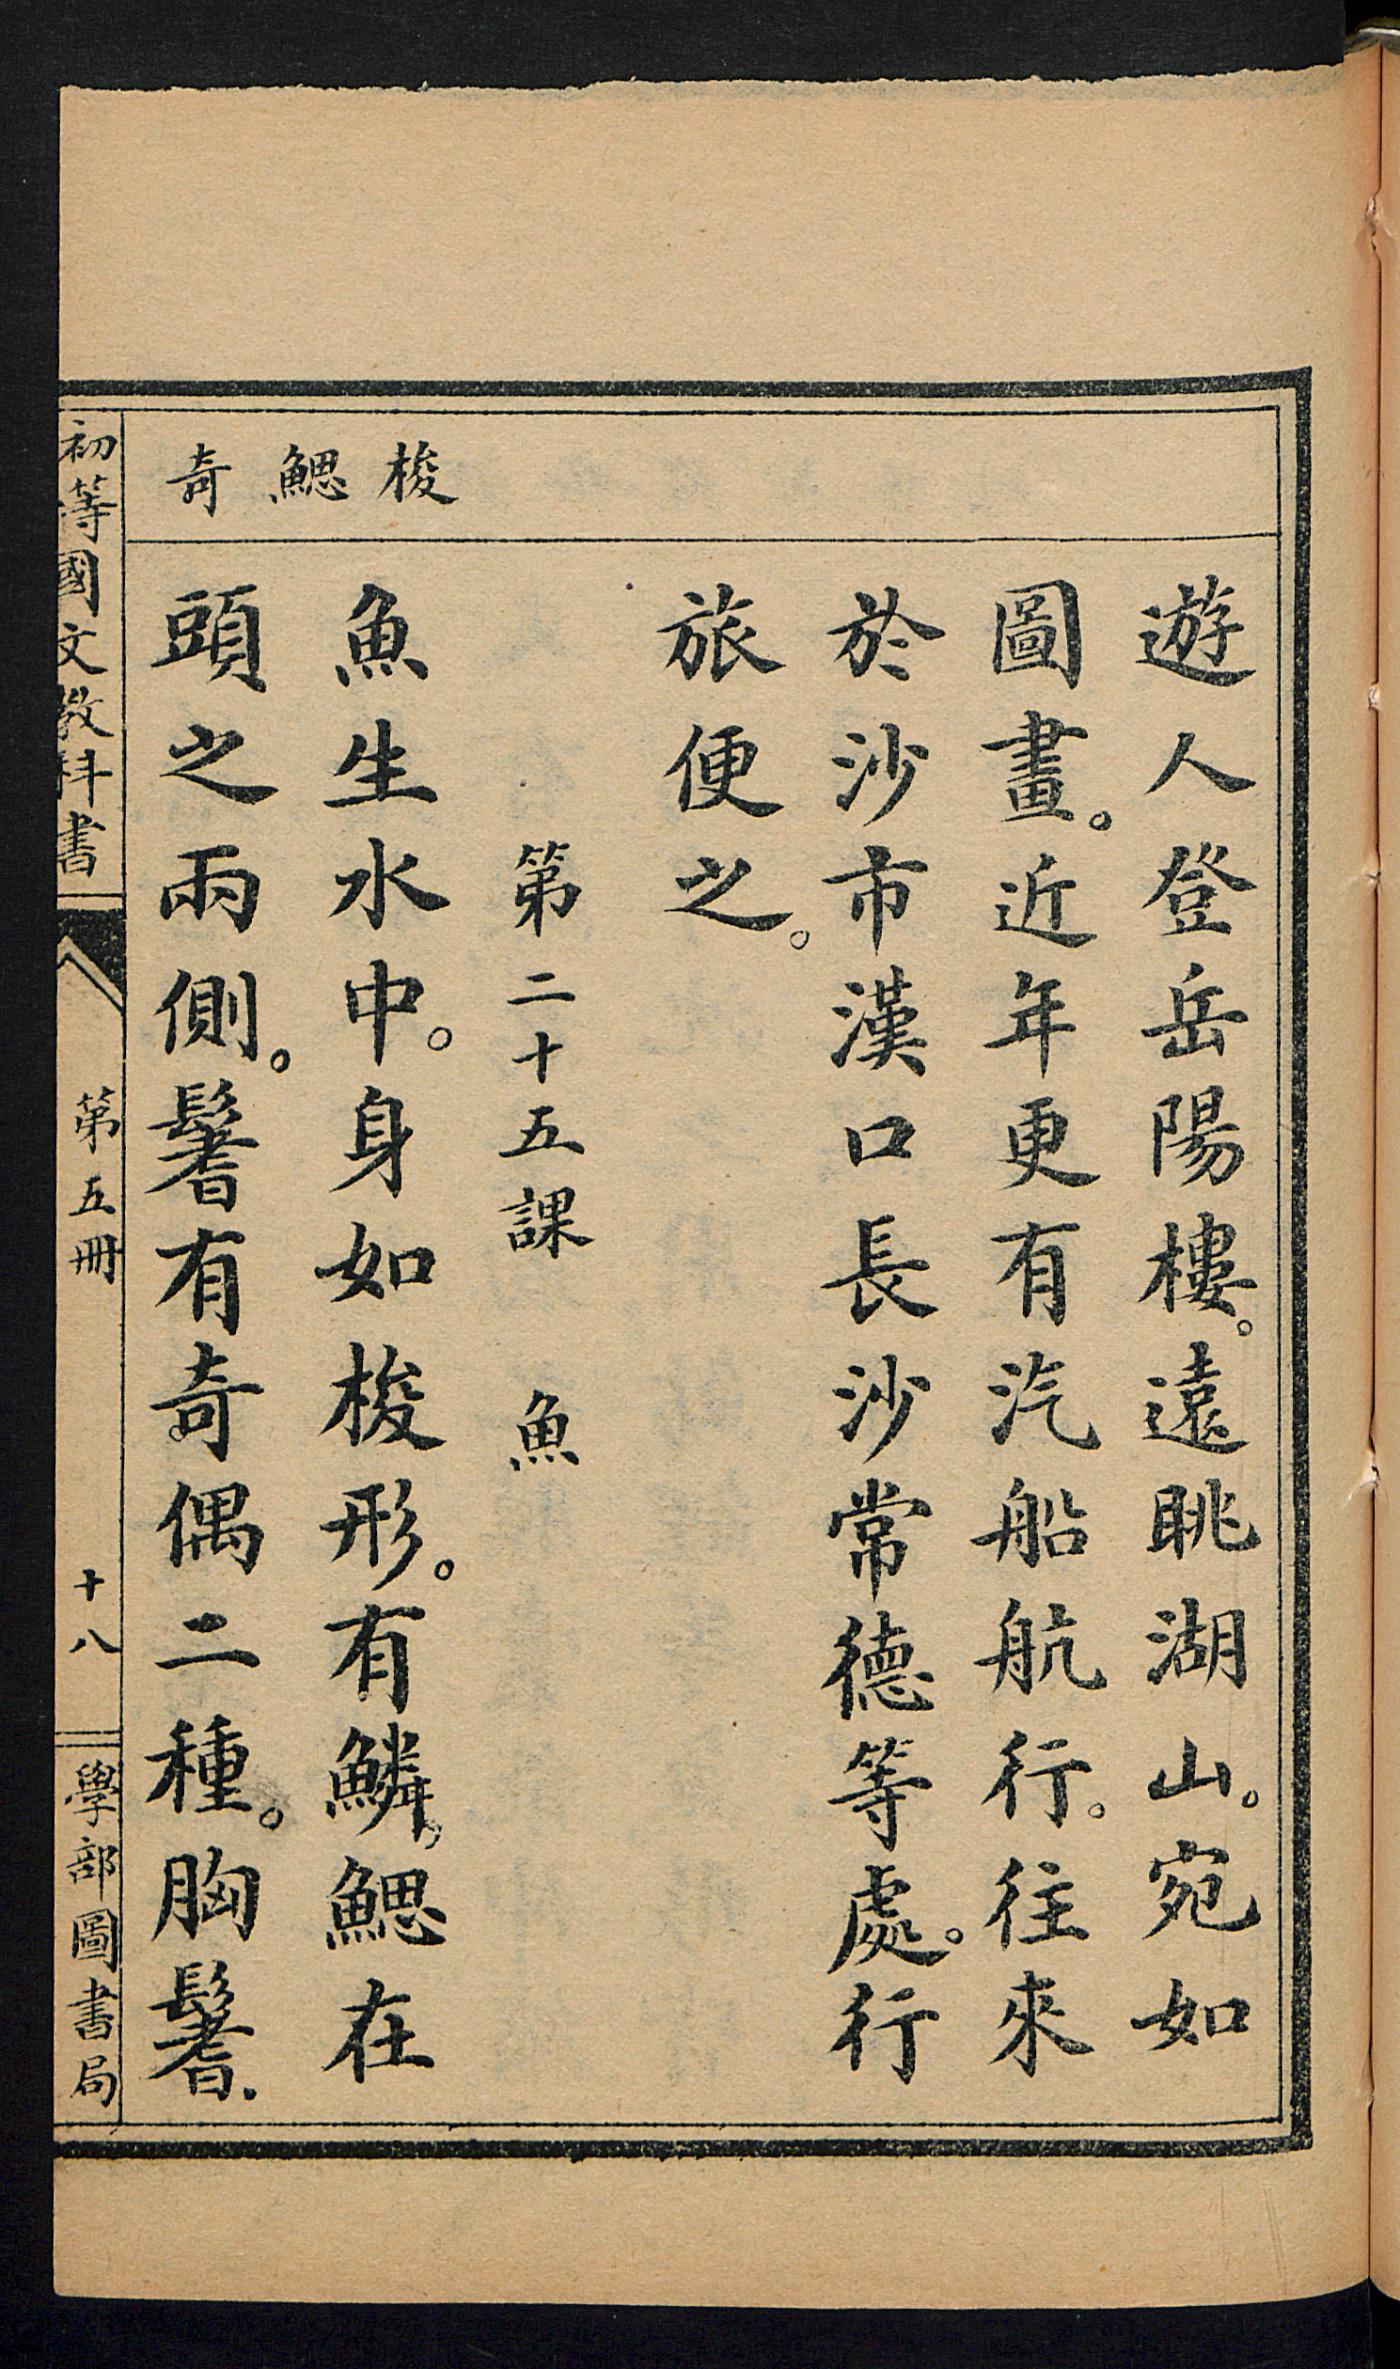 梭鰓奇
遊人登岳陽樓。遠眺湖山。宛如
圖畫。近年更有汽船航行。往來
於沙市漢口長沙常德等處。行
旅便之。
第二十五課　魚
魚生水中。身如梭形。有鱗，鰓在
頭之兩側。鬐有奇偶二種。胸鬐．
初等國文教科書　第五冊　十八　學部圖書局